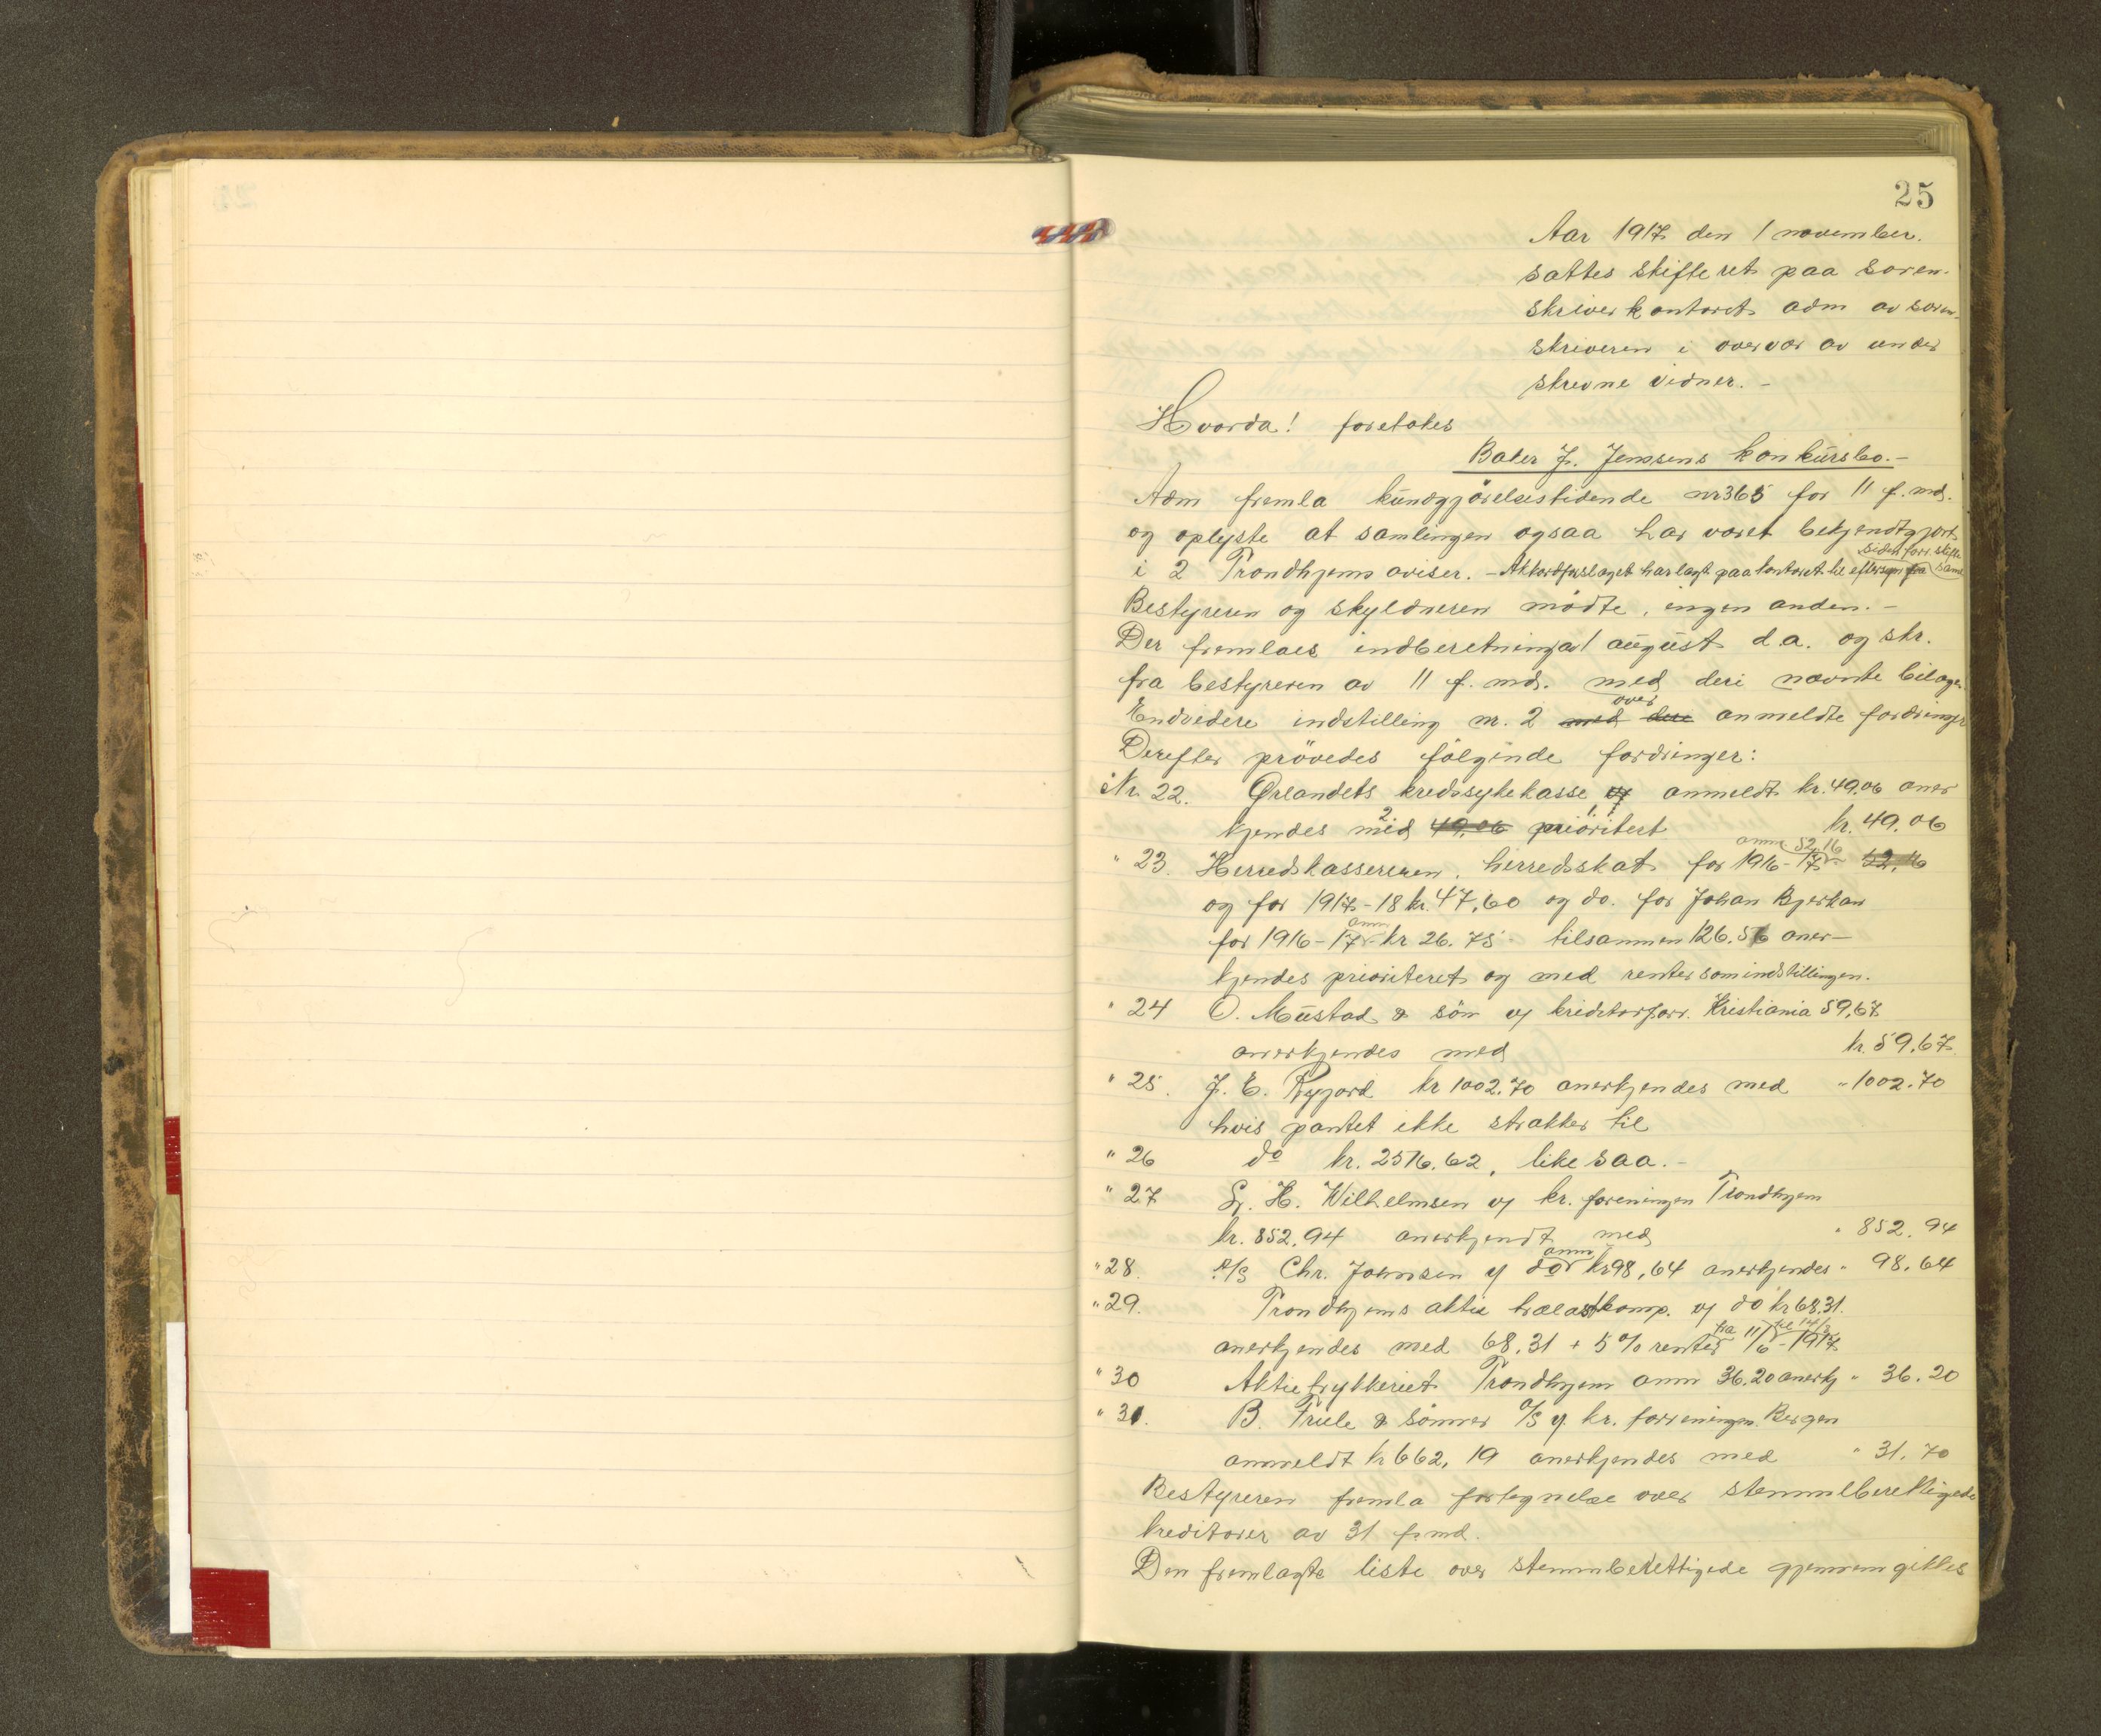 25
Aar 1917 den 1 november.
sattes skifteret paa soren-
skriverkontoret adm av soren-
skriveren i overvær av under
skrevne vidner. -
Hvorda! foretokes
Baker J. Jenssens konkursbo. -
Adm fremla kundgjørelsestidende nr 365 for 11 f. md.
og oplyste at samlingen ogsaa har været bekjendtgjort
siden forr. skifte
i 2 Trondhjems aviser. - Akkordforslaget har lagt paa kontoret til eftersyn fra saml
Bestyreren og skyldneren mødte, ingen anden. -
Der fremlaes indberetning av 1 august d.a. og skr.
fra bestyreren av 11 f. md. med deri nævnte bilager
Endvidere indstilling nr. 2 med dere over anmeldte fordringer
Derefter prövedes fölgende fordringer:
Nr. 22. Ørlandets kredssykekasse anmeldt kr. 49.06 aner
kjendes med 49.06 prioritert kr. 49.06
" 23. Herredskassereren, herredsskat for 1916-17 anm 52,16 52,16
og for 1917-18 kr. 47,60 og do. for Johan Bjerkan
for 1916-17 anm kr 26.75 tilsammen 126.56 aner-
kjendes prioriteret og med renter som indstillingen.
" 24 O. Mustad & sön v/ kreditorforr. Kristiania 59,67
anerkjendes med kr. 59.67
" 25. J. E. Rygjord kr 1002.70 anerkjendes med " 1002.70
hvis pantet ikke strækker til
" 26 do kr. 2516.62, likesaa. -
" 27 H. Wilhelmsen v/ kr. foreningen Trondhjem
kr. 852.94 anerkjendt med " 852.94
" 28. A/S Chr. Johnsen v/ do anm kr 98,64 anerkjendes " 98.64
" 29. Trondhjems aktie trælastkomp. v/ do kr 68.31.
anerkjendes med 68.31 + 5% renter fra 11/6 - 1917
" 30 Aktietrykkeriet Trondhjem anm 36.20 anerkj " 36.20
" 31. B. Friele & sönner A/S v/ kr. forreningen. Bergen
anmeldt kr 662,19 anerkjendes med " 31.70
Bestyreren fremla fortegnelse over stemmeberettigede
kreditorer av 31 f. md.
Den fremlagte liste over stemmeberettigede gjennemgikkes